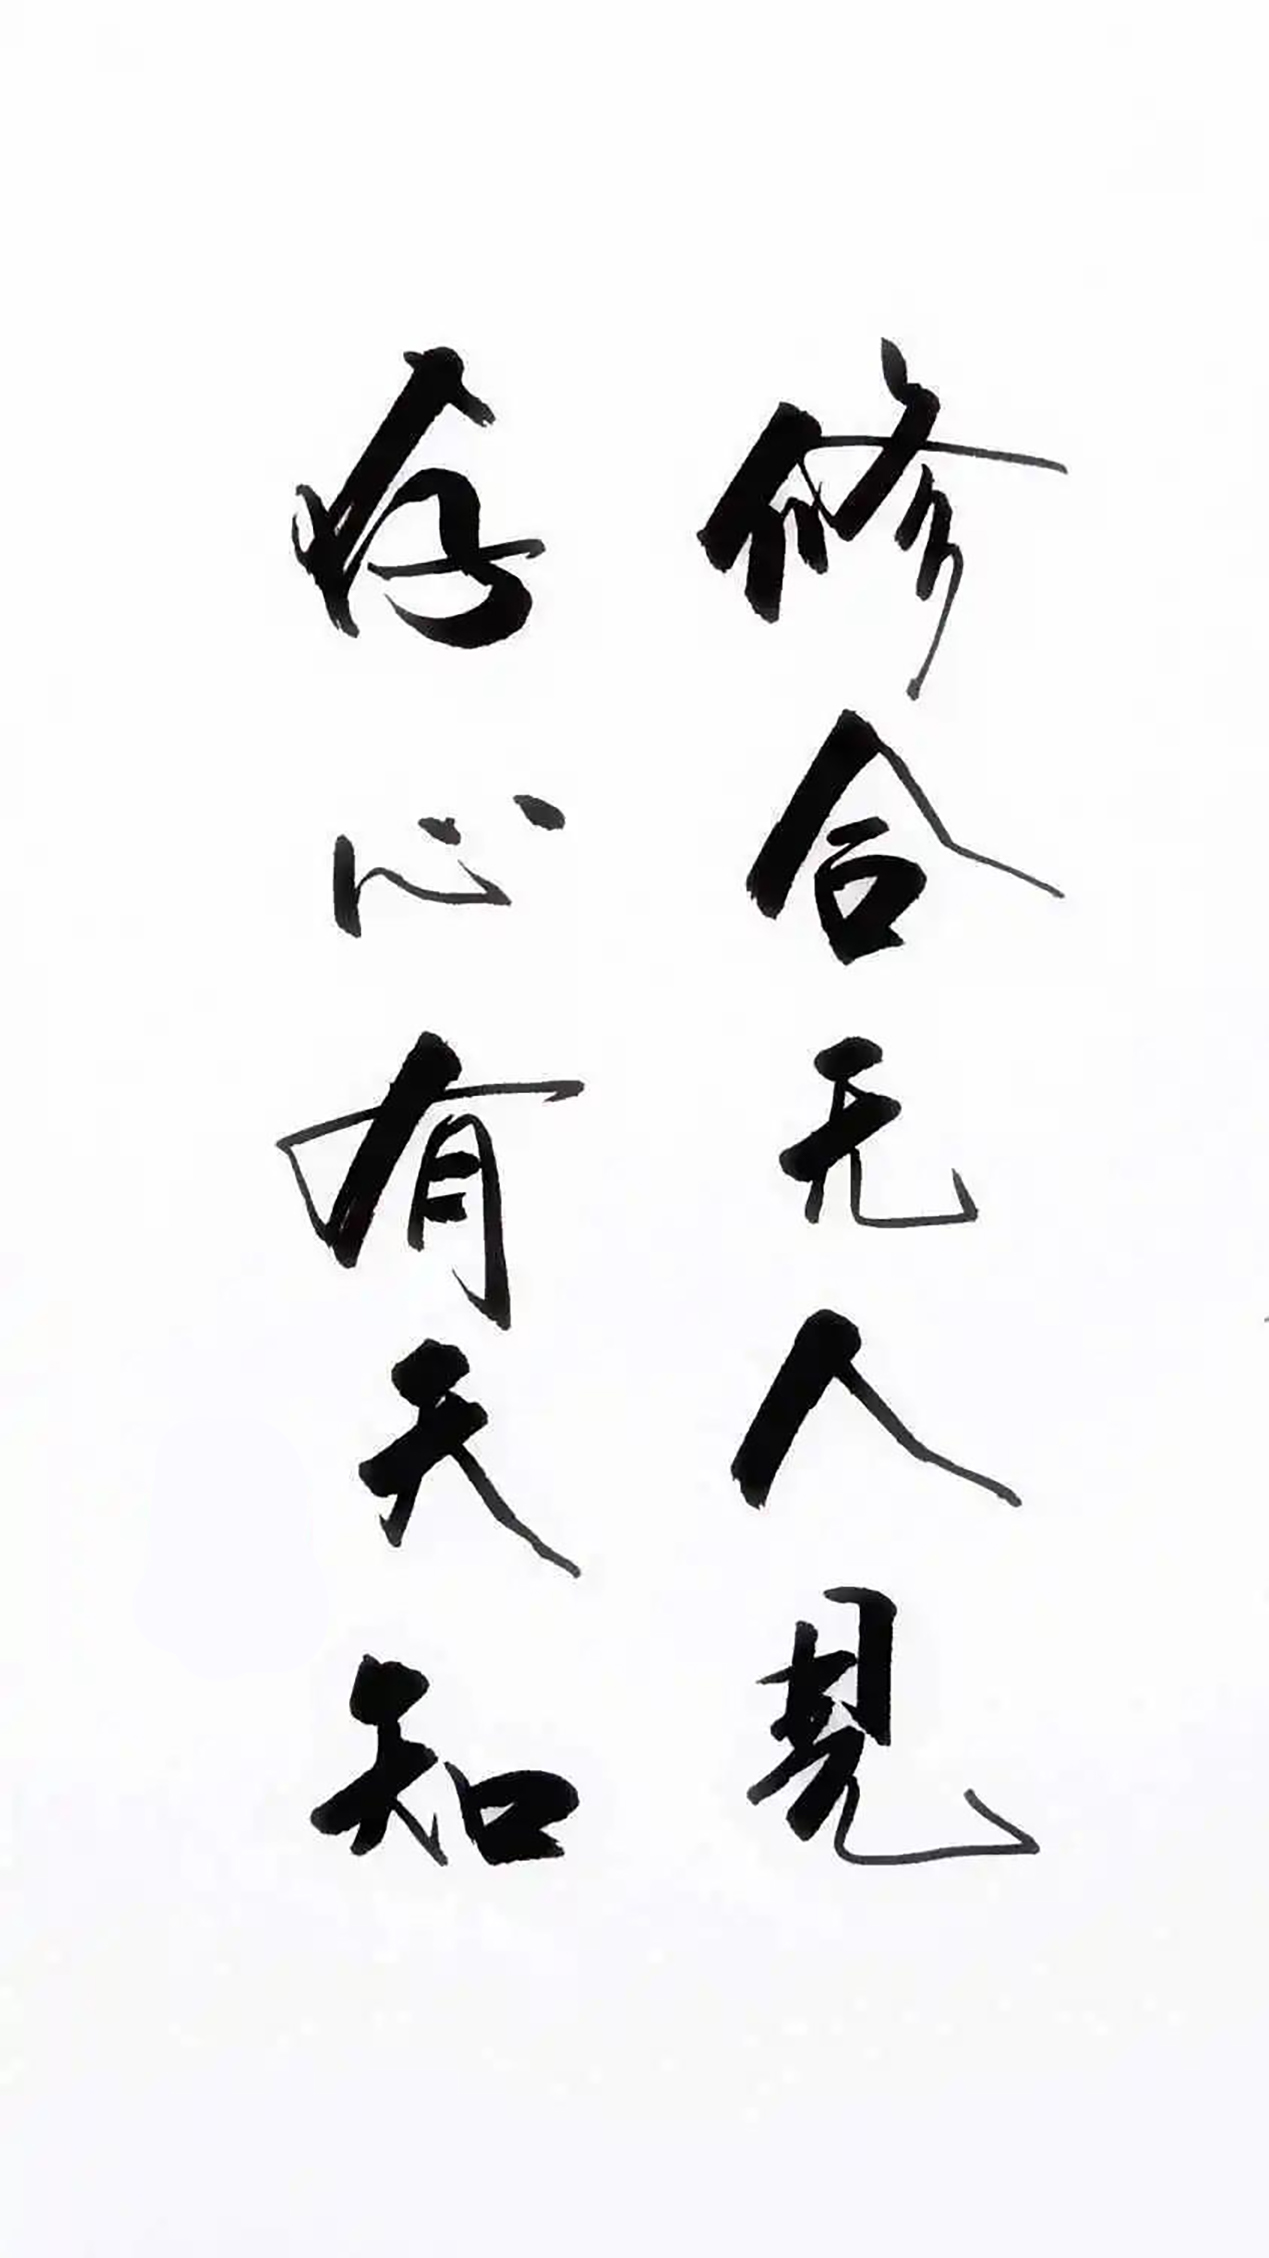 修合无人見
存心有天知